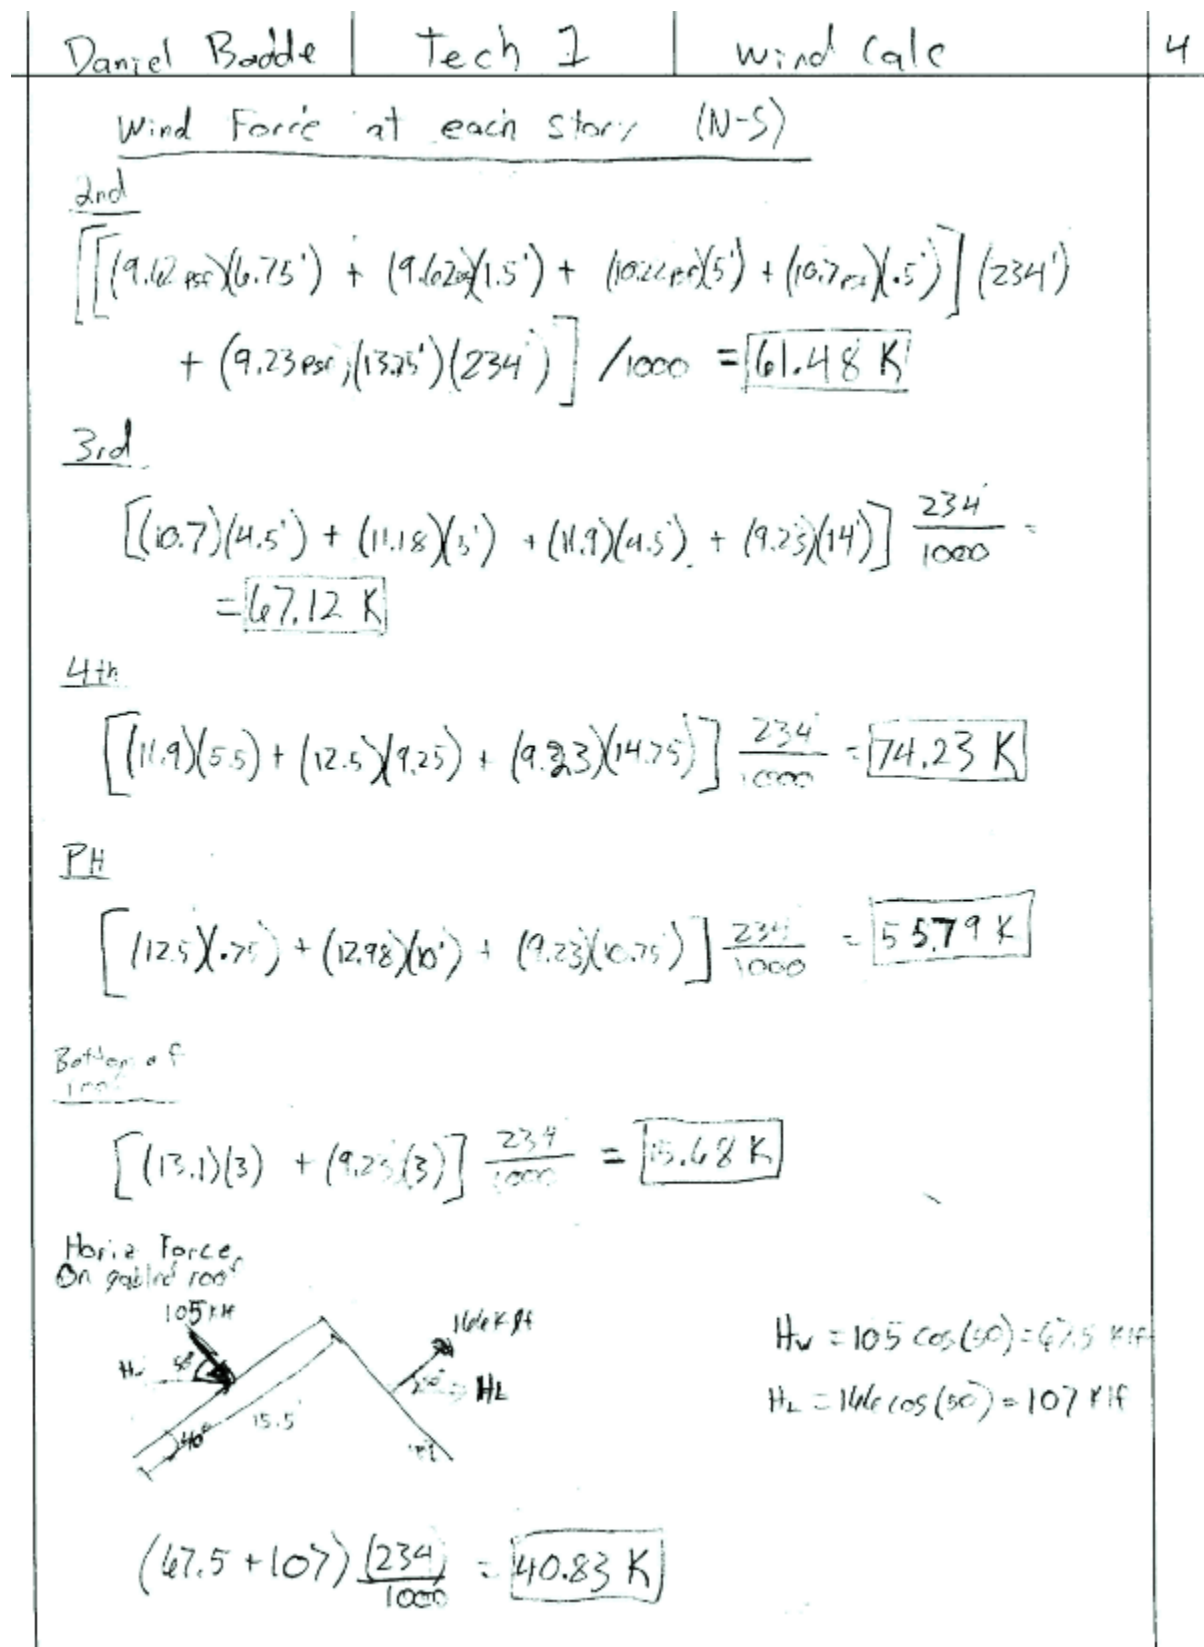 Daniel Bodde Tech 1 Wind Calc 4
Wind Force at each story (N-S)
2nd
[[(9.62 psf)(6.75') + (9.62psf)(1.5') + (10.22psf)(5') + (10.7psf)(.5')](234')
+ (9.23psf)(13.75')(234')] /1000 = 61.48 K
3rd
[(10.7)(4.5') + (11.18)(5') + (11.9)(4.5') + (9.23)(14')] 234'/1000 =
= 67.12 K
4th
[(11.9)(5.5) + (12.5)(9.25) + (9.23)(14.75)] 234'/1000 = 74.23 K
PH
[(12.5)(.75') + (12.98)(10') + (9.23)(10.75')] 234'/1000 = 55.79 K
Bottom of
roof
[(13.1)(3) + (9.23)(3)] 234'/1000 = 15.68 K
Horiz Force
On gabled roof
105 Klf
166 Klf
50°
HL
15.5'
40°
Hw = 105 cos(50) = 67.5 Klf
HL = 166 cos(50) = 107 Klf
(67.5 + 107) (234)/1000 = 40.83 K